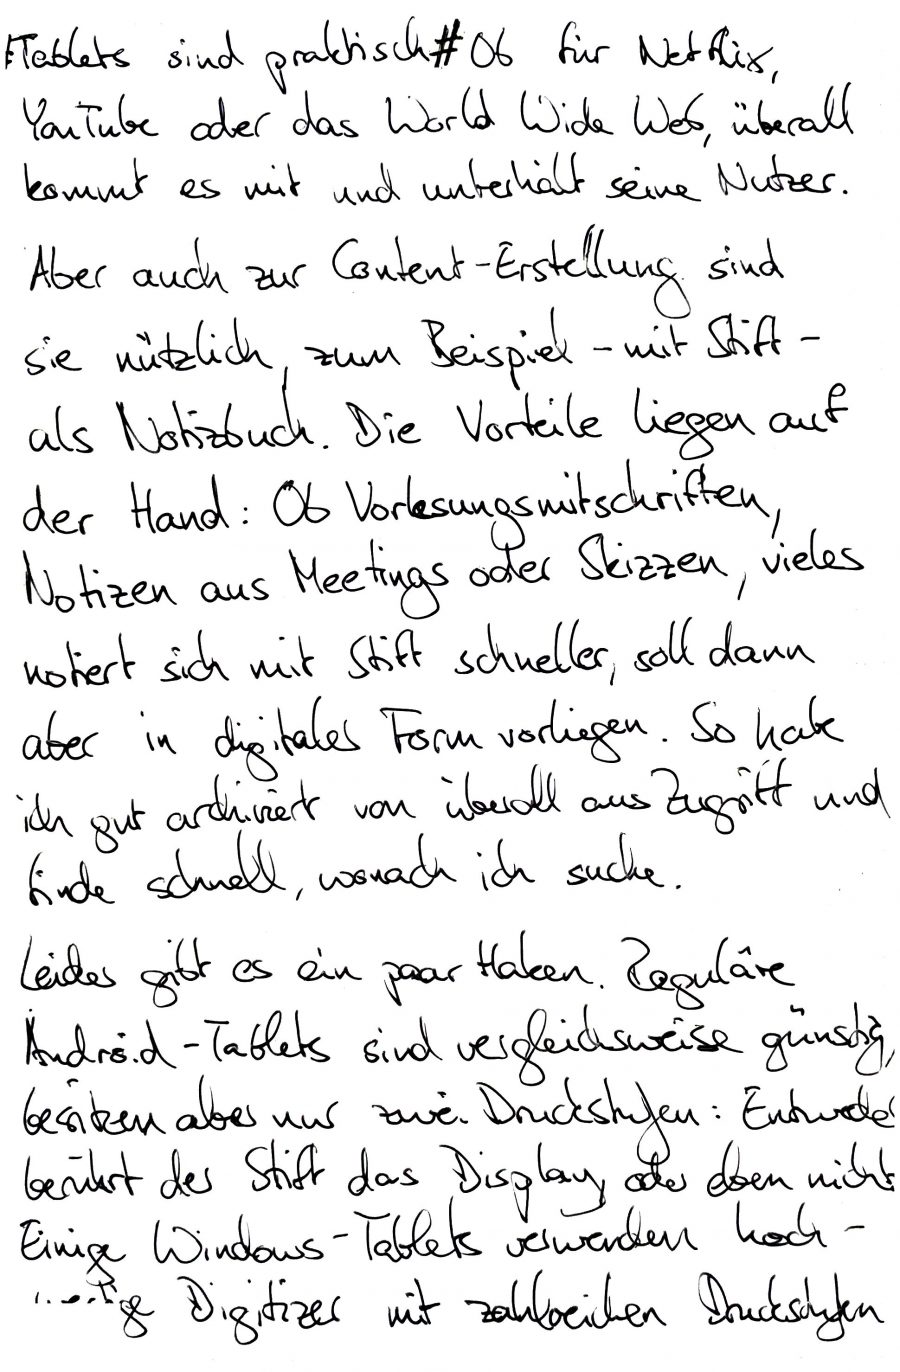 Tablets sind praktisch#Ob für Netflix,
YouTube oder das World Wide Web, überall
kommt es mit und unterhält seine Nutzer.
Aber auch zur Content-Erstellung sind
sie nützlich, zum Beispiel – mit Stift –
als Notizbuch. Die Vorteile liegen auf
der Hand: Ob Vorlesungsmitschriften,
Notizen aus Meetings oder Skizzen, vieles
notiert sich mit Stift schneller, soll dann
aber in digitaler Form vorliegen. So habe
ich gut archiviert von überall aus Zugriff und
finde schnell, wonach ich suche.
Leider gibt es ein paar Haken. Reguläre
Android-Tablets sind vergleichsweise günstig,
besitzen aber nur zwei Druckstufen: Entweder
berührt der Stift das Display, oder eben nicht
Einige Windows-Tablets verwenden hoch-
Digitizer mit zahlreichen Druckstufen